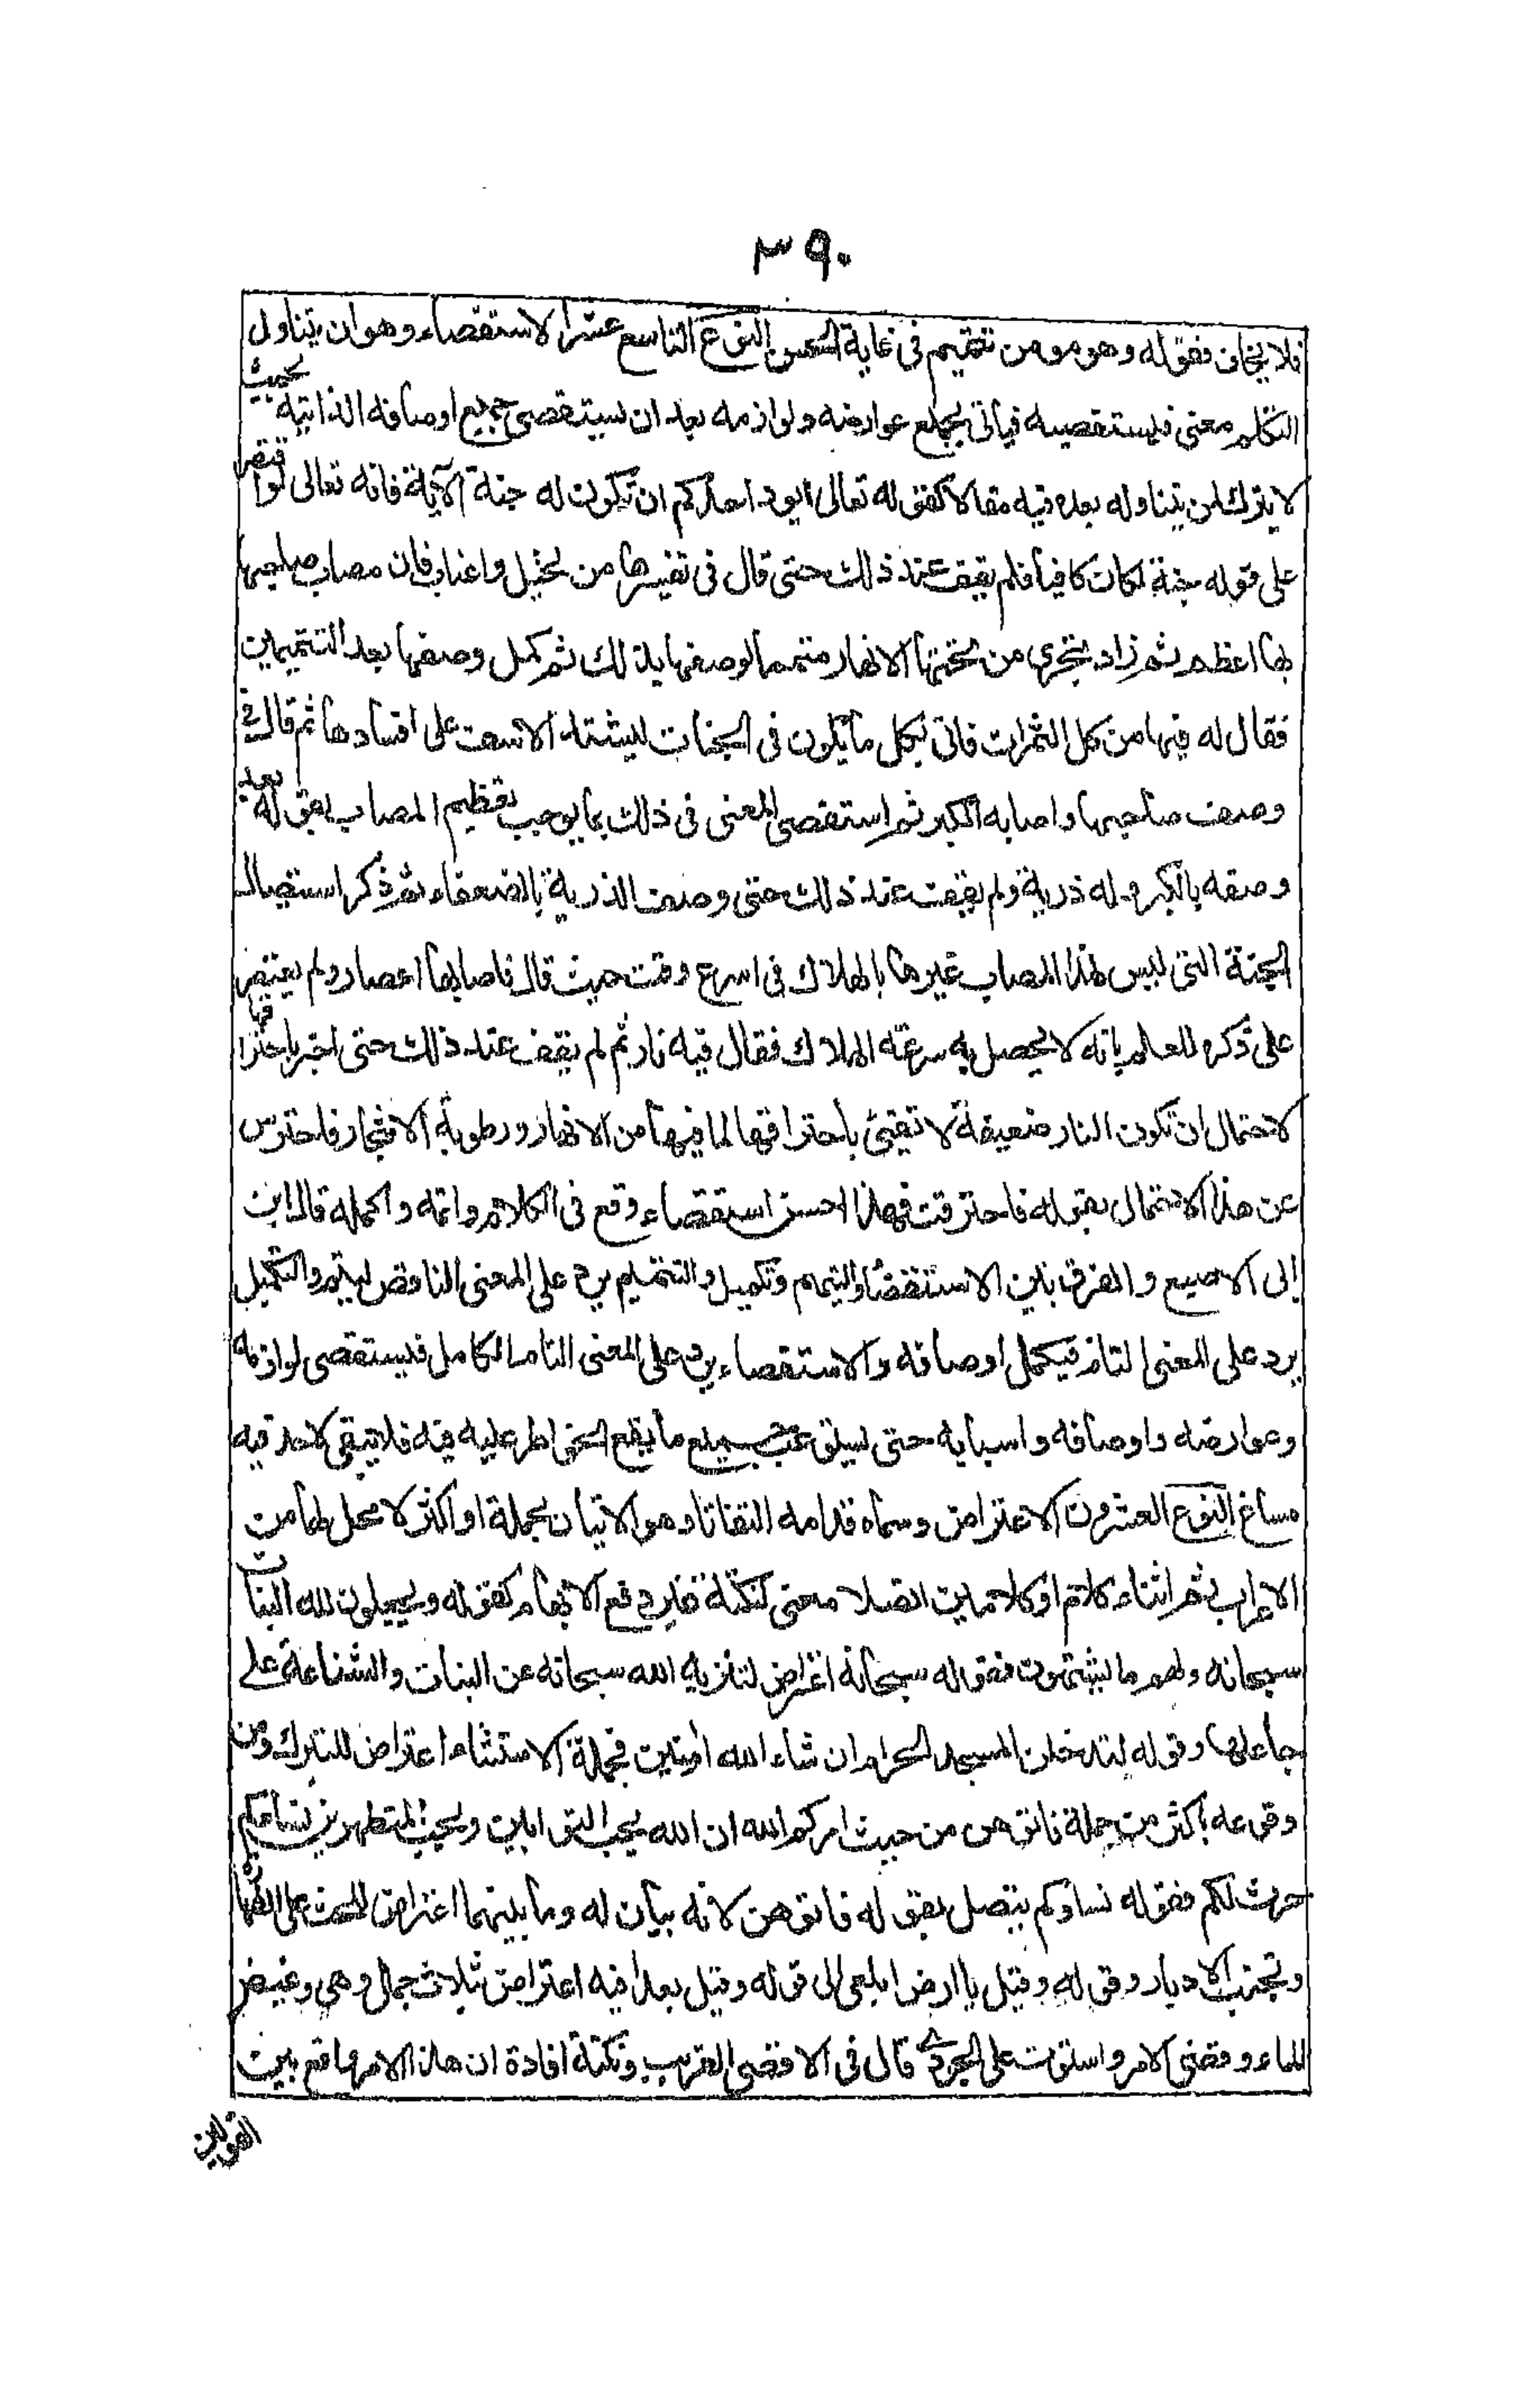 ٣٩٠
فلا يخاف فقوله وهو مومن تتميم في غاية الحسن النوع التاسع عشر الاستقصاء وهو ان يتناول
المتكلم معنى فيستقصيه فيأتى بجميع عوارضه ولوازمه بعد ان يستقصى جميع اوصافه الذاتية بحيث
لا يترك لمن يتناوله بعده فيه مقالا كقوله تعالى ايود احدكم ان تكون له جنة الآية فانه تعالى لو اقتصر
على قوله جنة لكان كافيا فلم يقف عند ذلك حتى قال في تفسيرها من نخيل واعناب فان مصاب صاحبها
بها اعظم ثم زاد تجري من تحتها الانهار متمما لوصفها بذلك ثم كمل وصفها بعد التتميمين
فقال له فيها من كل الثمرات فاتى بكل ما يكون في الجنات ليشتد الاسف على افسادها ثم قال في
وصف صاحبها واصابه الكبر ثم استقصى المعنى في ذلك بما يوجب تعظيم المصاب بقوله بعد
وصفه بالكبر وله ذرية ولم يقف عند ذلك حتى وصف الذرية بالضعفاء ثم ذكر استيصال
الجنة التى ليس لهذا المصاب غيرها بالهلاك في اسرع وقت حيث قال فاصابها اعصار ولم يقتصر
على ذكره للعلم بانه لا يحصل به سرعة الهلاك فقال فيه نار ثم لم يقف عند ذلك حتى اخبر باحتراقها
لاحتمال ان تكون النار ضعيفة لا تفئ باحتراقها لما فيها من الانهار ورطوبة الاشجار فاحترس
عن هذا الاحتمال بقوله فاحترقت فهذا احسن استقصاء وقع في الكلام واتمه واكمله قال ابن
ابى الاصبع والفرق بين الاستقصاء والتتميم وتكميل والتتميم يرد على المعنى الناقص ليتم والتكميل
يرد على المعنى التام فيكمل اوصافه والاستقصاء يرد على المعنى التام الكامل فيستقصى لوازمه
وعوارضه واوصافه واسبابه حتى يستوعب جميع ما يقع الخواطر عليه فيه فلا يبقى لاحد فيه
مساغ النوع العشرون الاعتراض وسماه قدامه التفاتا وهو الاتيان بجملة او اكثر لا محل لها من
الاعراب ثم اثناء كلام او كلامين اتصلا معنى لنكتة غير دفع الابهام كقوله ويجعلون لله البنات
سبحانه ولهم ما يشتهون فقوله سبحانه اعتراض لتنزيه الله سبحانه عن البنات والشناعة على
جاعلها وقوله لتدخلن المسجد الحرام ان شاء الله امنين فجملة الاستثناء اعتراض للتبرك ومن
وقوعه باكثر من جملة فاتوهن من حيث امركم الله ان الله يحب التوابين ويحب المتطهرين نساؤكم
حرث لكم فقوله نساوكم يتصل بقوله فاتوهن لانه بيان له وما بينهما اعتراض للحث على الطهارة
وتجنب الادبار وقوله وقيل يا ارض ابلعى الى قوله وقيل بعدا فيه اعتراض ثلاث جمل وهي وغيض
الماء وقضى الامر واستوت على الجودي قال في الاقصى القريب ونكتة افادة ان هذا الامر واقع بين
القولين